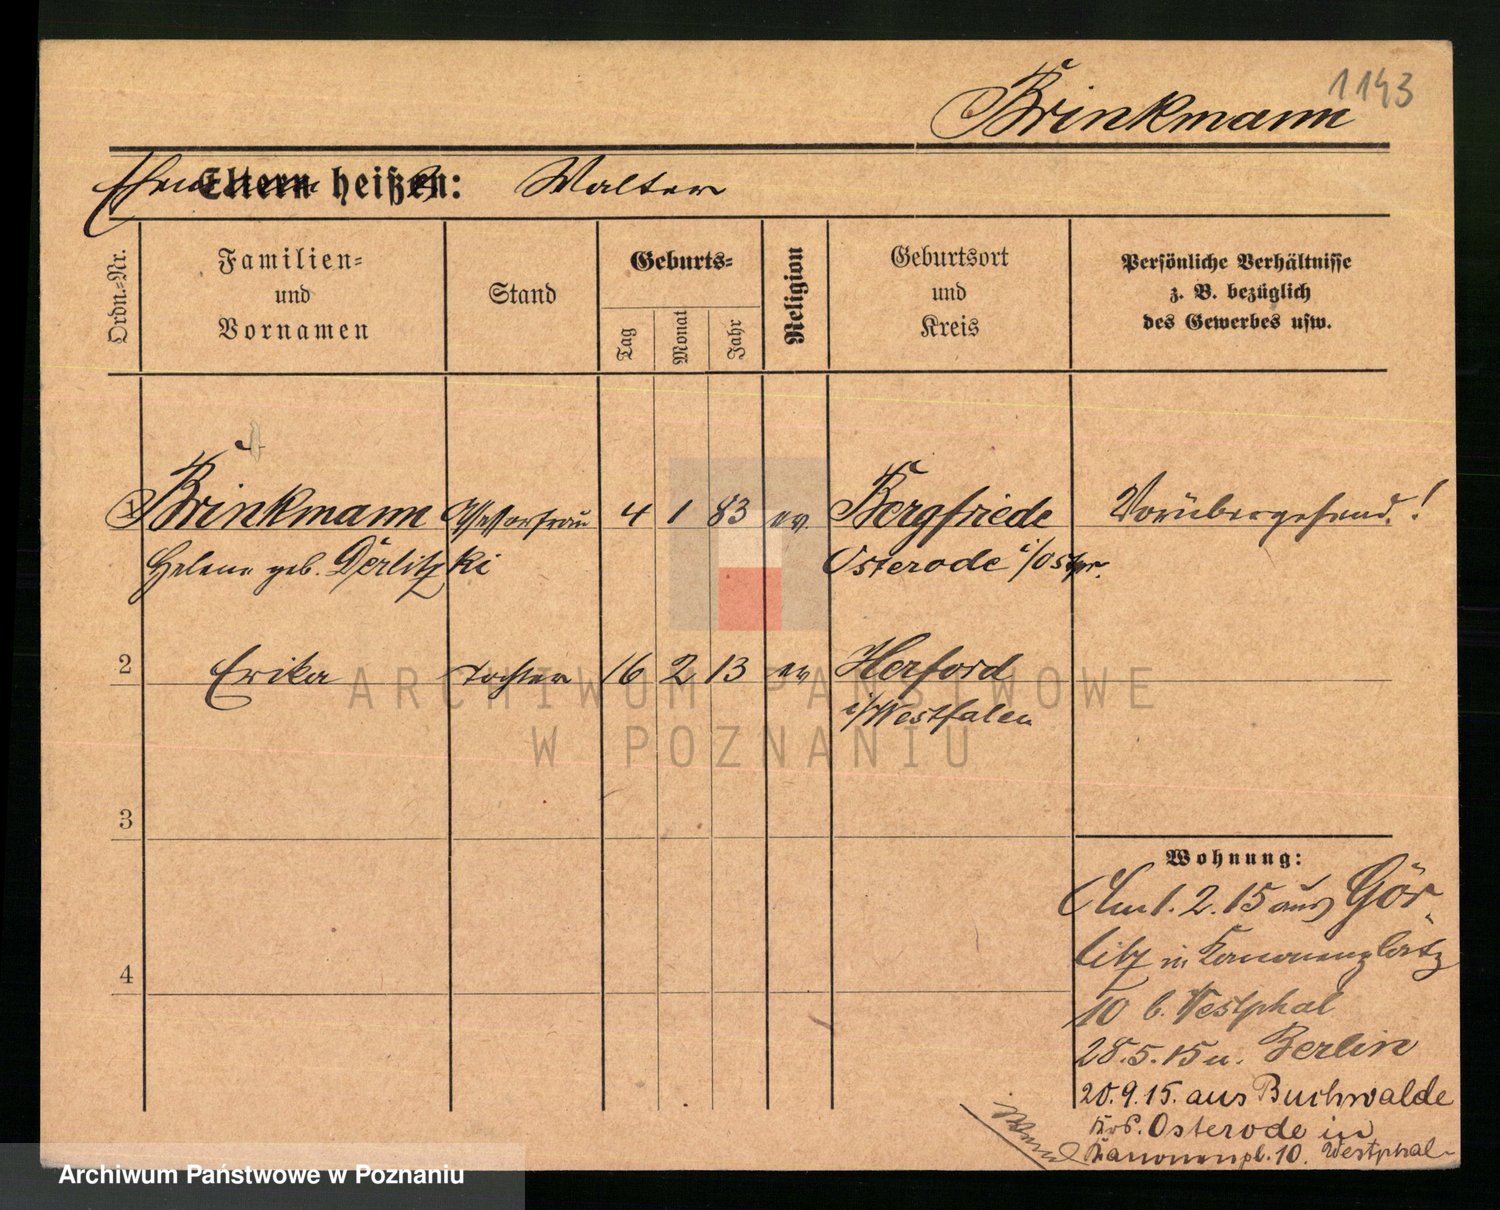 1143
Brinkmann
Eltern heißen: Walter
Ordn.-Nr.
Familien-
und
Vornamen
Stand
Geburts-
Tag
Monat
Jahr
Religion
Geburtsort
und
Kreis
Persönliche Verhältnisse
z. B. bezüglich
des Gewerbes usw.
1 Brinkmann 4 1 83 ev Bergfriede Vorübergehend.!
Helene geb. Derlitzki Osterode i/Ostpr.
2 Erika Tochter 16 2 13 ev Herford
i/Westfalen
3
4
Wohnung:
Am 1. 2. 15 aus Gör-
litz in Kanonenplatz
10 b. Westphal
28.5.15 n. Berlin
20.9.15. aus Buchwalde
Krs. Osterode in
Kanonenpl. 10. Westphal
ARCHIWUM PAŃSTWOWE
W POZNANIU
Archiwum Państwowe w Poznaniu